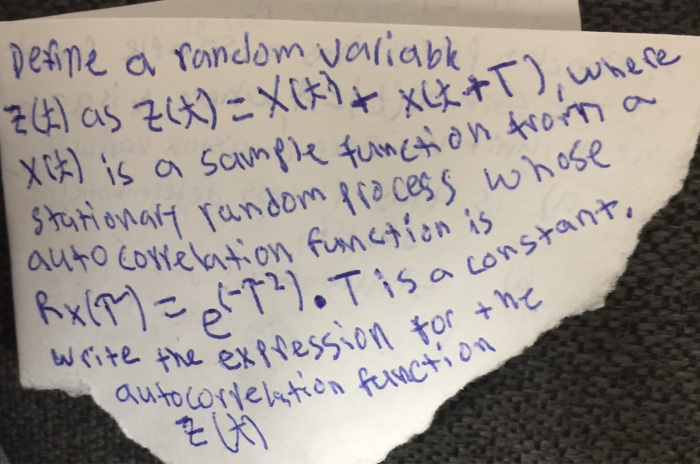 Define a random variable
Z(t) as Z(t) = X(t) + X(t + T), where
X(t) is a sample function from a
stationary random process whose
autocorrelation function is
Rx(τ) = e^(-τ²). T is a constant.
write the expression for the
autocorrelation function
Z(t)